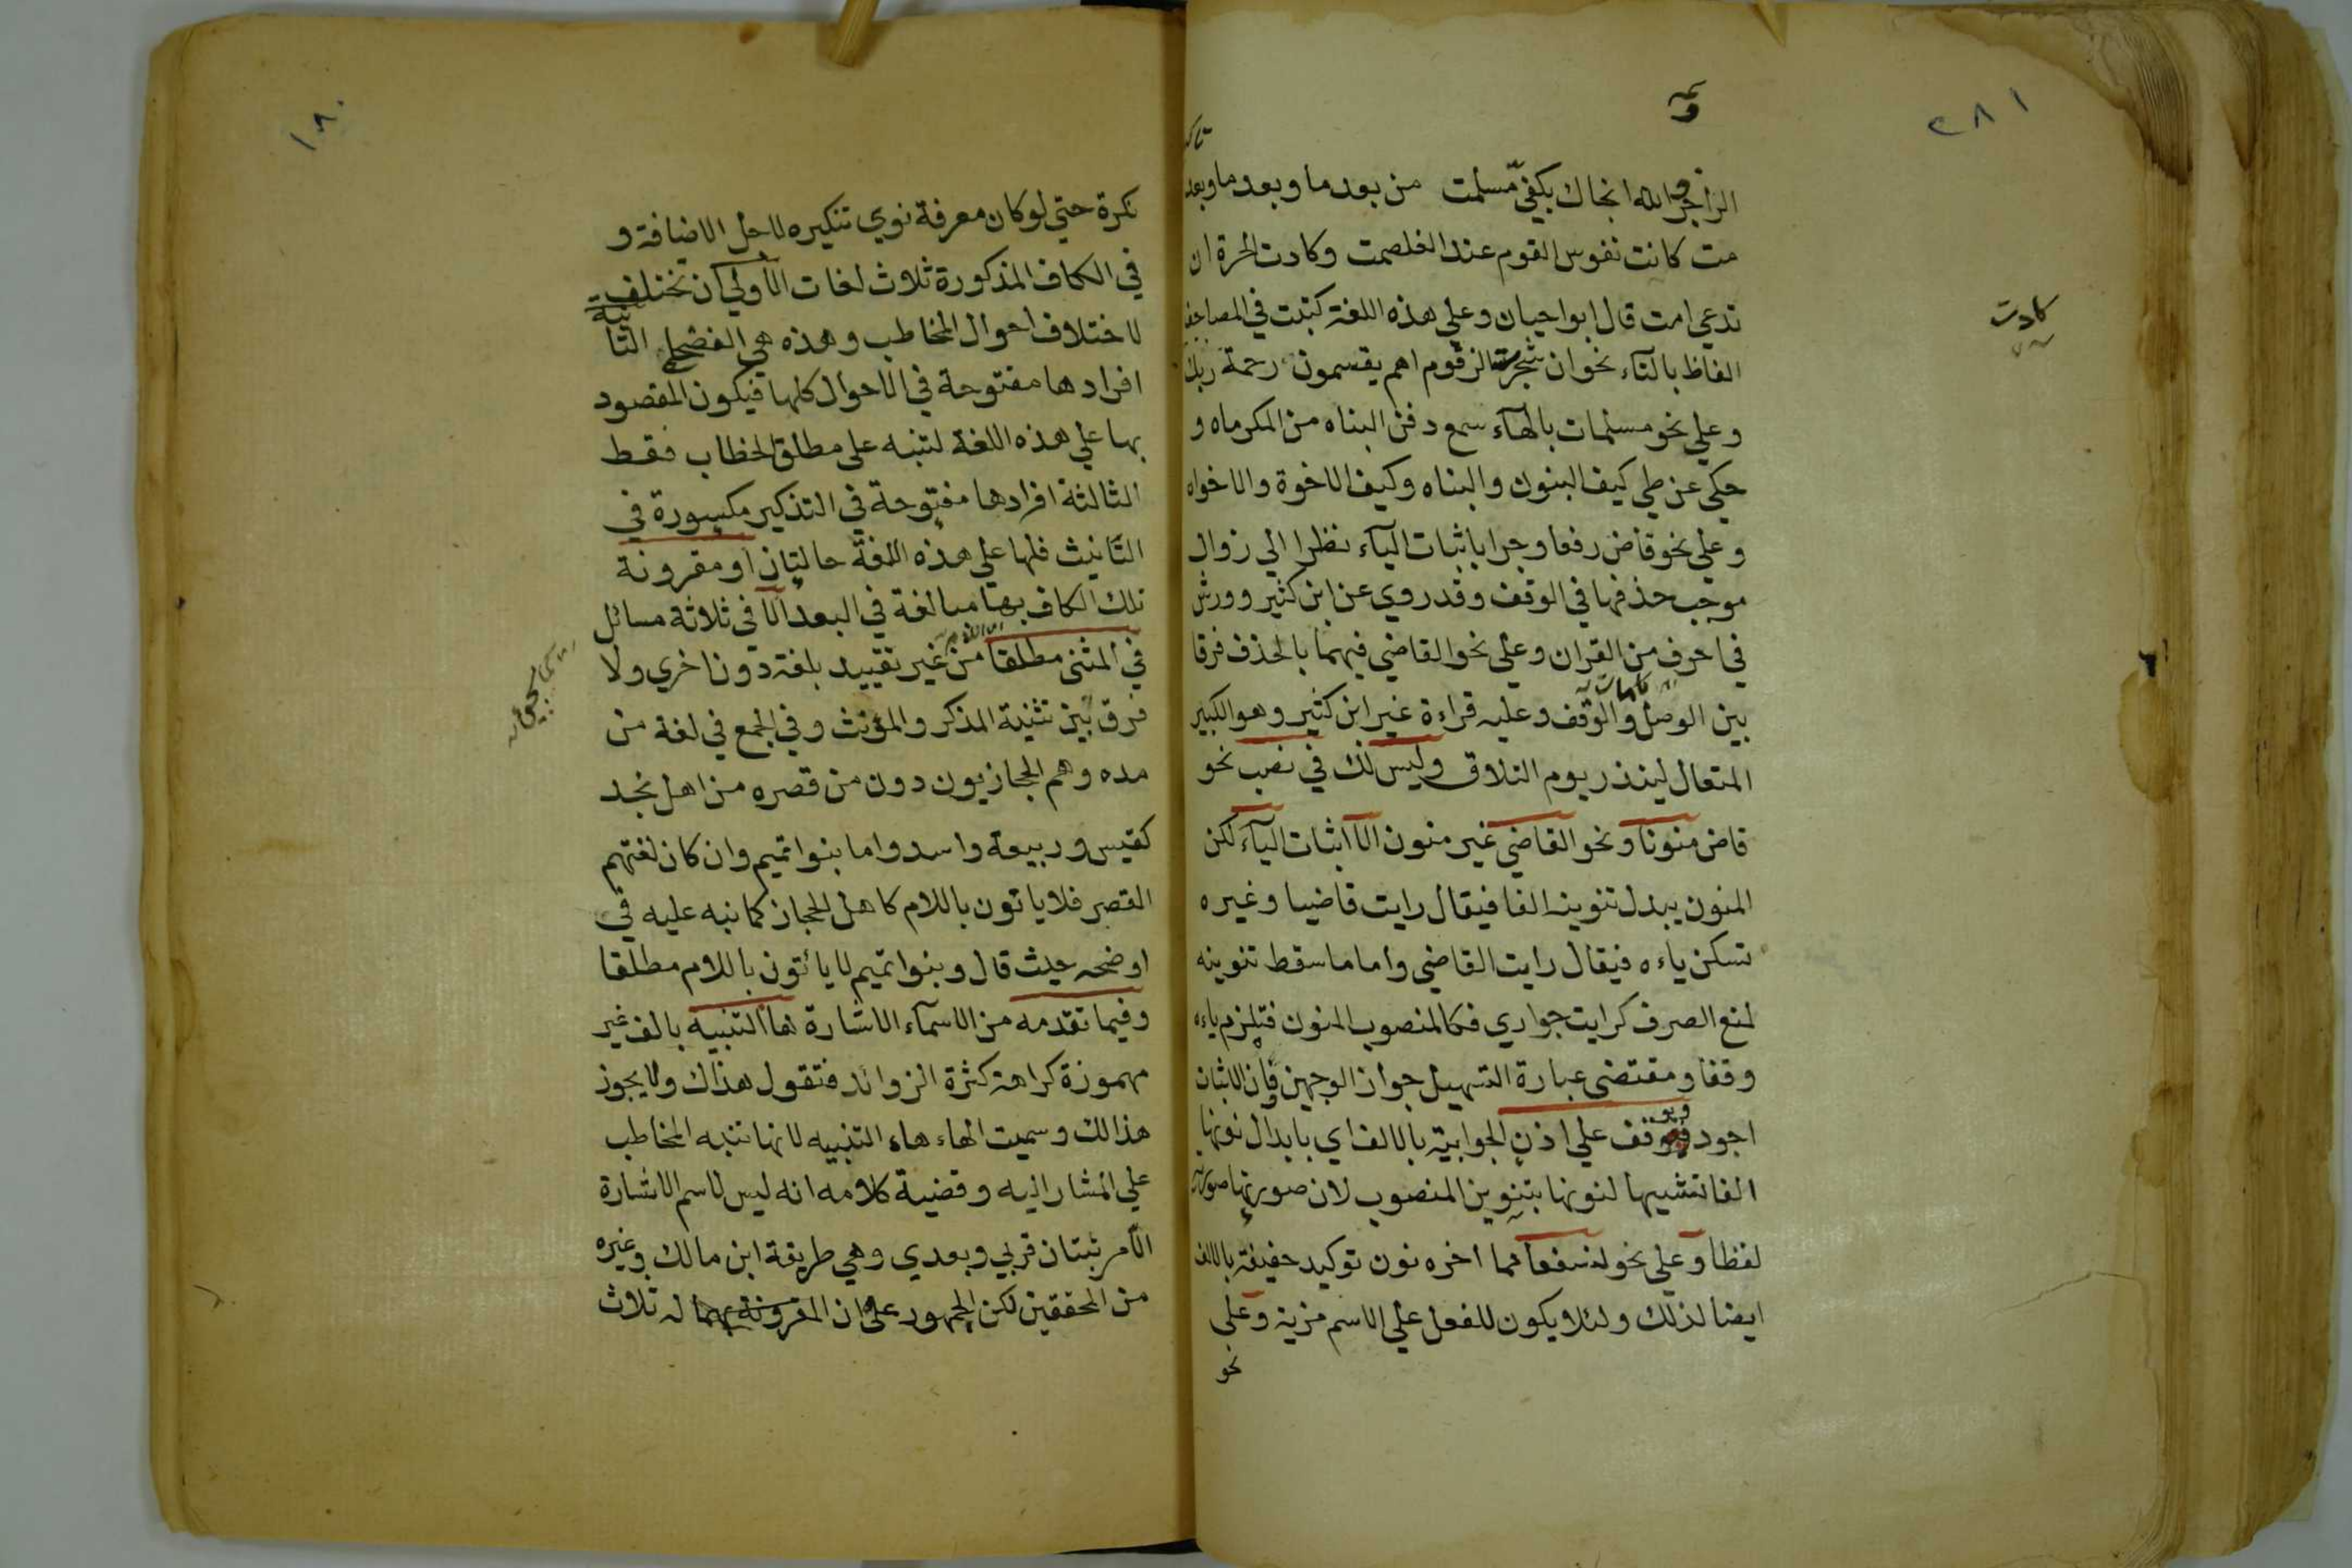 ٢٨١
الراجز والله انجاك بكفي مسلمت من بعدما وبعدما وبعد
مت كانت نفوس القوم عند الغلصمت وكادت الحرة ان
تدعي امت قال ابو حيان وعلي هذه اللغة كتبت في المصاحف
الفاظ بالتاء نحو ان شجرت الزقوم اهم يقسمون رحمة ربك
وعلي نحو مسلمات بالهاء سمع دفن البناه من المكرماه و
حكي عن طي كيف البنون والبناه وكيف الاخوة والاخواه
وعلي نحو قاض رفعا وجرا باثبات الياء نظرا الي زوال
موجب حذفها في الوقف وقد روي عن ابن كثير وورش
في احرف من القران وعلي نحو القاضي فيهما بالحذف فرقا
بين الوصل والوقف وعليه قراءة غير ابن كثير وهو الكبير
المتعال لينذر يوم التلاق وليس لك في نصب نحو
قاض منونا ونحو القاضي غير منون الا اثبات الياء لكن
المنون يبدل تنوينه الفا فيقال رايت قاضيا وغيره
تسكن ياءه فيقال رايت القاضي واما ما سقط تنوينه
لمنع الصرف كرايت جواري فكالمنصوب المنون فتلزم ياءه
وقفا ومقتضى عبارة التسهيل جواز الوجهين وان الاثبات
اجود ويوقف علي اذن الجوابية بالالف اي بابدال نونها
الفا تشبيها لنونها بتنوين المنصوب لان صورتها صورته
لفظا وعلي نحو لنسفعا مما اخره نون توكيد خفيفة بالالف
ايضا لذلك ولئلا يكون للفعل علي الاسم مزية وعلي
نحو
كادت
١٨٠
نكرة حتي لو كان معرفة نوي تنكيره لاجل الاضافة و
في الكاف المذكورة ثلاث لغات الأولي ان تختلف
لاختلاف احوال المخاطب وهذه هي الفصحي الثانية
افرادها مفتوحة في الاحوال كلها فيكون المقصود
بها علي هذه اللغة لتنبه على مطلق الخطاب فقط
الثالثة افرادها مفتوحة في التذكير مكسورة في
التانيث فلها علي هذه اللغة حالتان او مقرونة
تلك الكاف بها مبالغة في البعد الا في ثلاثة مسائل
في المثنى مطلقا من غير تقييد بلغة دون اخري ولا
فرق بين تثنية المذكر والمؤنث وفي الجمع في لغة من
مده وهم الحجازيون دون من قصره من اهل نجد
كقيس وربيعة واسد واما بنوا تميم وان كان لغتهم
القصر فلا ياتون باللام كاهل الحجاز كما نبه عليه في
اوضحه حيث قال وبنوا تميم لا يأتون باللام مطلقا
وفيما تقدمه من الاسماء الاشارة ها التنبيه بالف غير
مهموزة كراهة كثرة الزوائد فتقول هذاك ولا يجوز
هذالك وسميت الهاء هاء التنبيه لانها تنبه المخاطب
علي المشار اليه وقضية كلامه انه ليس لاسم الاشارة
الا مرتبتان قربي وبعدي وهي طريقة ابن مالك وغيره
من المحققين لكن الجمهور علي ان المقرونة بهما له ثلاث